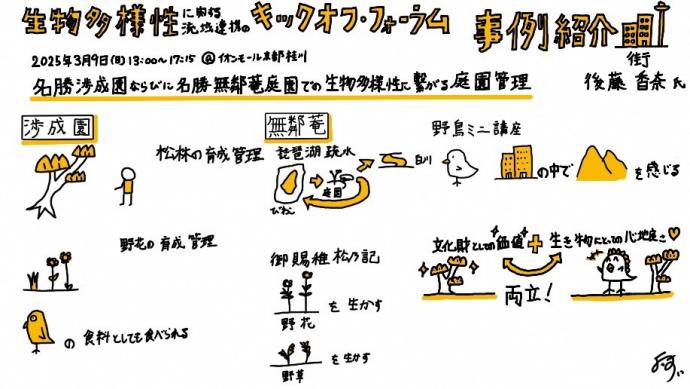 生物多様性に関する流域連携のキックオフ・フォーラム 事例紹介
2025年3月9日(日)13:00〜17:15 @イオンモール京都桂川
街
後藤 香奈 氏
名勝渉成園ならびに名勝無鄰菴庭園での生物多様性に繋がる庭園管理
渉成園
松林の育成管理
野花の育成管理
の食料としても食べられる
無鄰菴
琵琶湖疏水
びわこ
庭園
白川
御賜稚松乃記
野花 を生かす
野草 を生かす
野鳥ミニ講座
の中で を感じる
文化財としての価値 + 生き物にとっての心地良さ
両立!